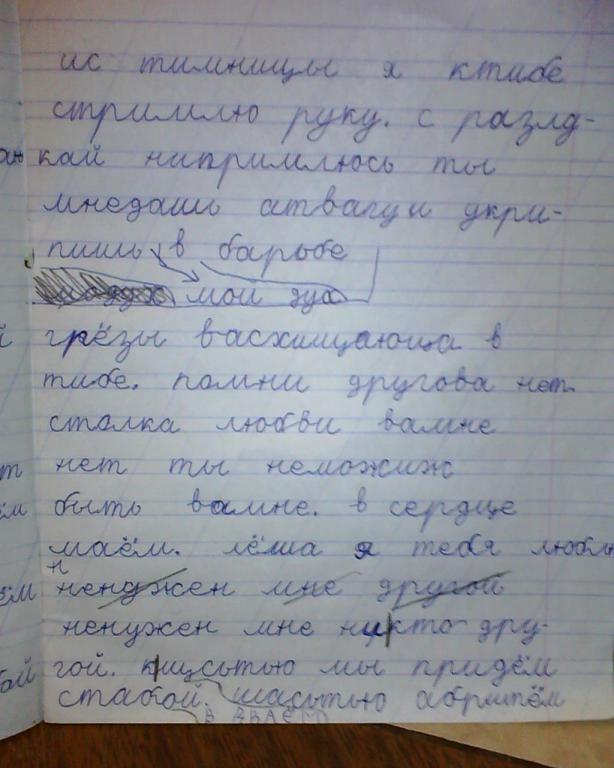 ис тимницы я ктибе
стримлю руку. с разлу-
кай нипримлюсь ты
мнедашь атвагу и укри-
пишь в барьбе
мой дух
грёзы васхищающа в
тибе. помни другова нет.
столка любви вамне
нет ты неможиж
быть вамне. в сердце
маём. лёша я тебя люблю
ненужен мне другой
ненужен мне никто дру-
гой. кщсьтью мы придём
стабой. щасьтью абритём